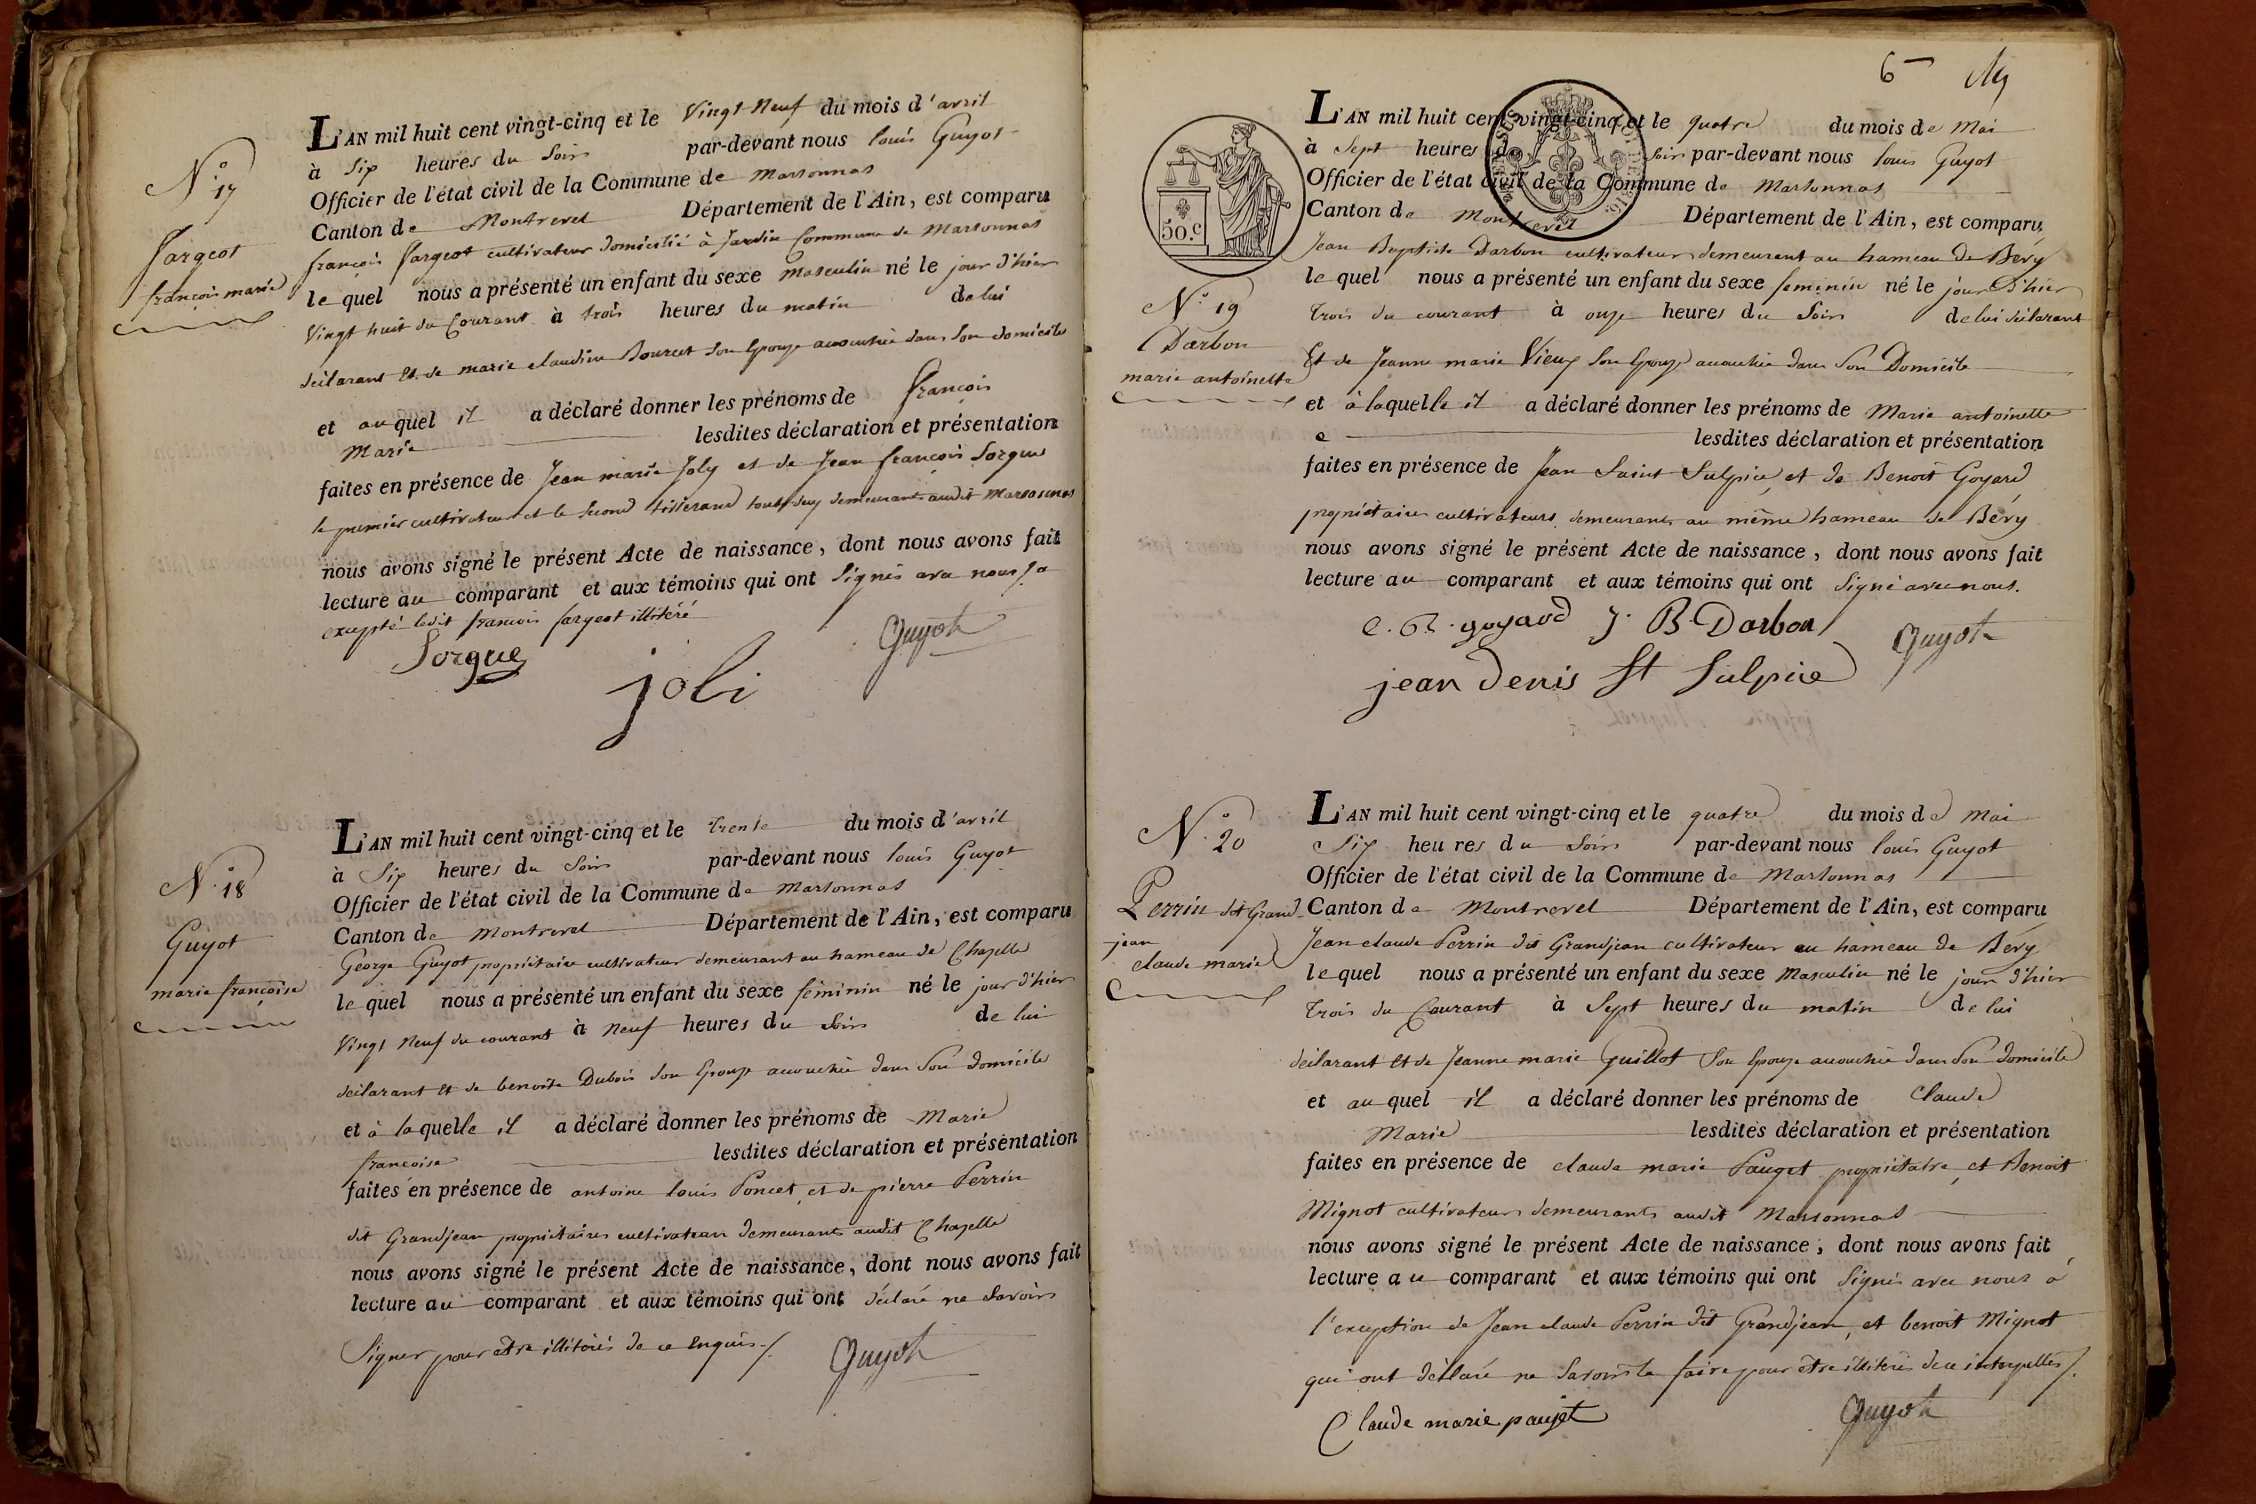 N.° 17
Fargeot
françois marie
L'AN mil huit cent vingt-cinq et le Vingt Neuf du mois d'avril
à Six heures du Soir par-devant nous louis Guyot
Officier de l'état civil de la Commune de Marsonnas
Canton de Montrevel Département de l'Ain, est comparu
françois fargeot cultivateur domicilié à Jardin Commune de Marsonnas
le quel nous a présenté un enfant du sexe masculin né le jour d'hier
Vingt huit du Courant à trois heures du matin de lui
déclarant Et de marie claudine Bourcet Son Epouse accouchée dans Son domicile
et au quel il a déclaré donner les prénoms de François
Marie lesdites déclaration et présentation
faites en présence de Jean marie Joly et de Jean françois Sorgue
le premier cultivateur et le second tisserand tous deux demeurants audit Marsonnas
nous avons signé le présent Acte de naissance, dont nous avons fait
lecture au comparant et aux témoins qui ont Signés avec nous
excepté ledit francois fargeot illitéré
Sorgue joli Guyot
N.° 18
Guyot
marie françoise
L'AN mil huit cent vingt-cinq et le trente du mois d'avril
à Six heures du Soir par-devant nous louis Guyot
Officier de l'état civil de la Commune de Marsonnas
Canton de Montrevel Département de l'Ain, est comparu
George Guyot propriétaire cultivateur demeurant au hameau de Chapelle
le quel nous a présenté un enfant du sexe féminin né le jour d'hier
Vingt Neuf du courant à Neuf heures du Soir de lui
déclarant Et de benoite Dubois Son Epouse accouchée dans Son domicile
et à laquelle il a déclaré donner les prénoms de Marie
francoise lesdites déclaration et présentation
faites en présence de antoine louis Poncet, et de pierre Perrin
dit Grandjean propriétaires cultivateurs demeurants audit Chapelle
nous avons signé le présent Acte de naissance, dont nous avons fait
lecture au comparant et aux témoins qui ont déclaré ne Savoir
Signer pour être illitérés de ce Enquis./.
Guyot
6
50.c
N.° 19
Darbon
marie antoinette
L'AN mil huit cent vingt-cinq et le quatre du mois de Mai
à Sept heures du Soir par-devant nous louis Guyot
Officier de l'état civil de la Commune de Marsonnas
Canton de Montrevel Département de l'Ain, est comparu
Jean Baptiste Darbon cultivateur demeurant au hameau de Béry
le quel nous a présenté un enfant du sexe feminin né le jour D'hier
trois du courant à onze heures du Soir de lui déclarant
Et de Jeanne marie Vieux Son Epouse accouchée dans Son Domicile
et à laquelle il a déclaré donner les prénoms de Marie antoinette
lesdites déclaration et présentation
faites en présence de Jean Saint Sulpice, et de Benoit Goyard
propriétaires cultivateurs demeurants au même hameau de Béry
nous avons signé le présent Acte de naissance, dont nous avons fait
lecture au comparant et aux témoins qui ont Signé avec nous.
goyard J. B. Darbon
Guyot
jean denis St Sulpice
N.° 20
Perrin dit Grand-
jean
claude marie
L'AN mil huit cent vingt-cinq et le quatre du mois de Mai
Six heures du Soir par-devant nous louis Guyot
Officier de l'état civil de la Commune de Marsonnas
Canton de Montrevel Département de l'Ain, est comparu
Jean claude Perrin dit Grandjean cultivateur au hameau de Béry
le quel nous a présenté un enfant du sexe Masculin né le jour d'hier
trois du Courant à Sept heures du matin de lui
déclarant Et de Jeanne marie Guillot Son Epouse accouchée dans Son domicile
et au quel il a déclaré donner les prénoms de Claude
Marie lesdites déclaration et présentation
faites en présence de claude marie Pauget propriétaire, et Benoit
Mignot cultivateurs demeurants audit Marsonnas
nous avons signé le présent Acte de naissance, dont nous avons fait
lecture au comparant et aux témoins qui ont Signés avec nous à
l'exception de Jean claude Perrin dit Grandjean, et benoit Mignot
qui ont déclaré ne Savoir le faire pour être illitérés de ce interpellés./.
Claude marie pauget Guyot